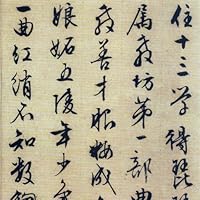 住十三学得琵琶
属教坊第一部曲
教善才服粧成
娘妬五陵年少
一曲紅綃不知數